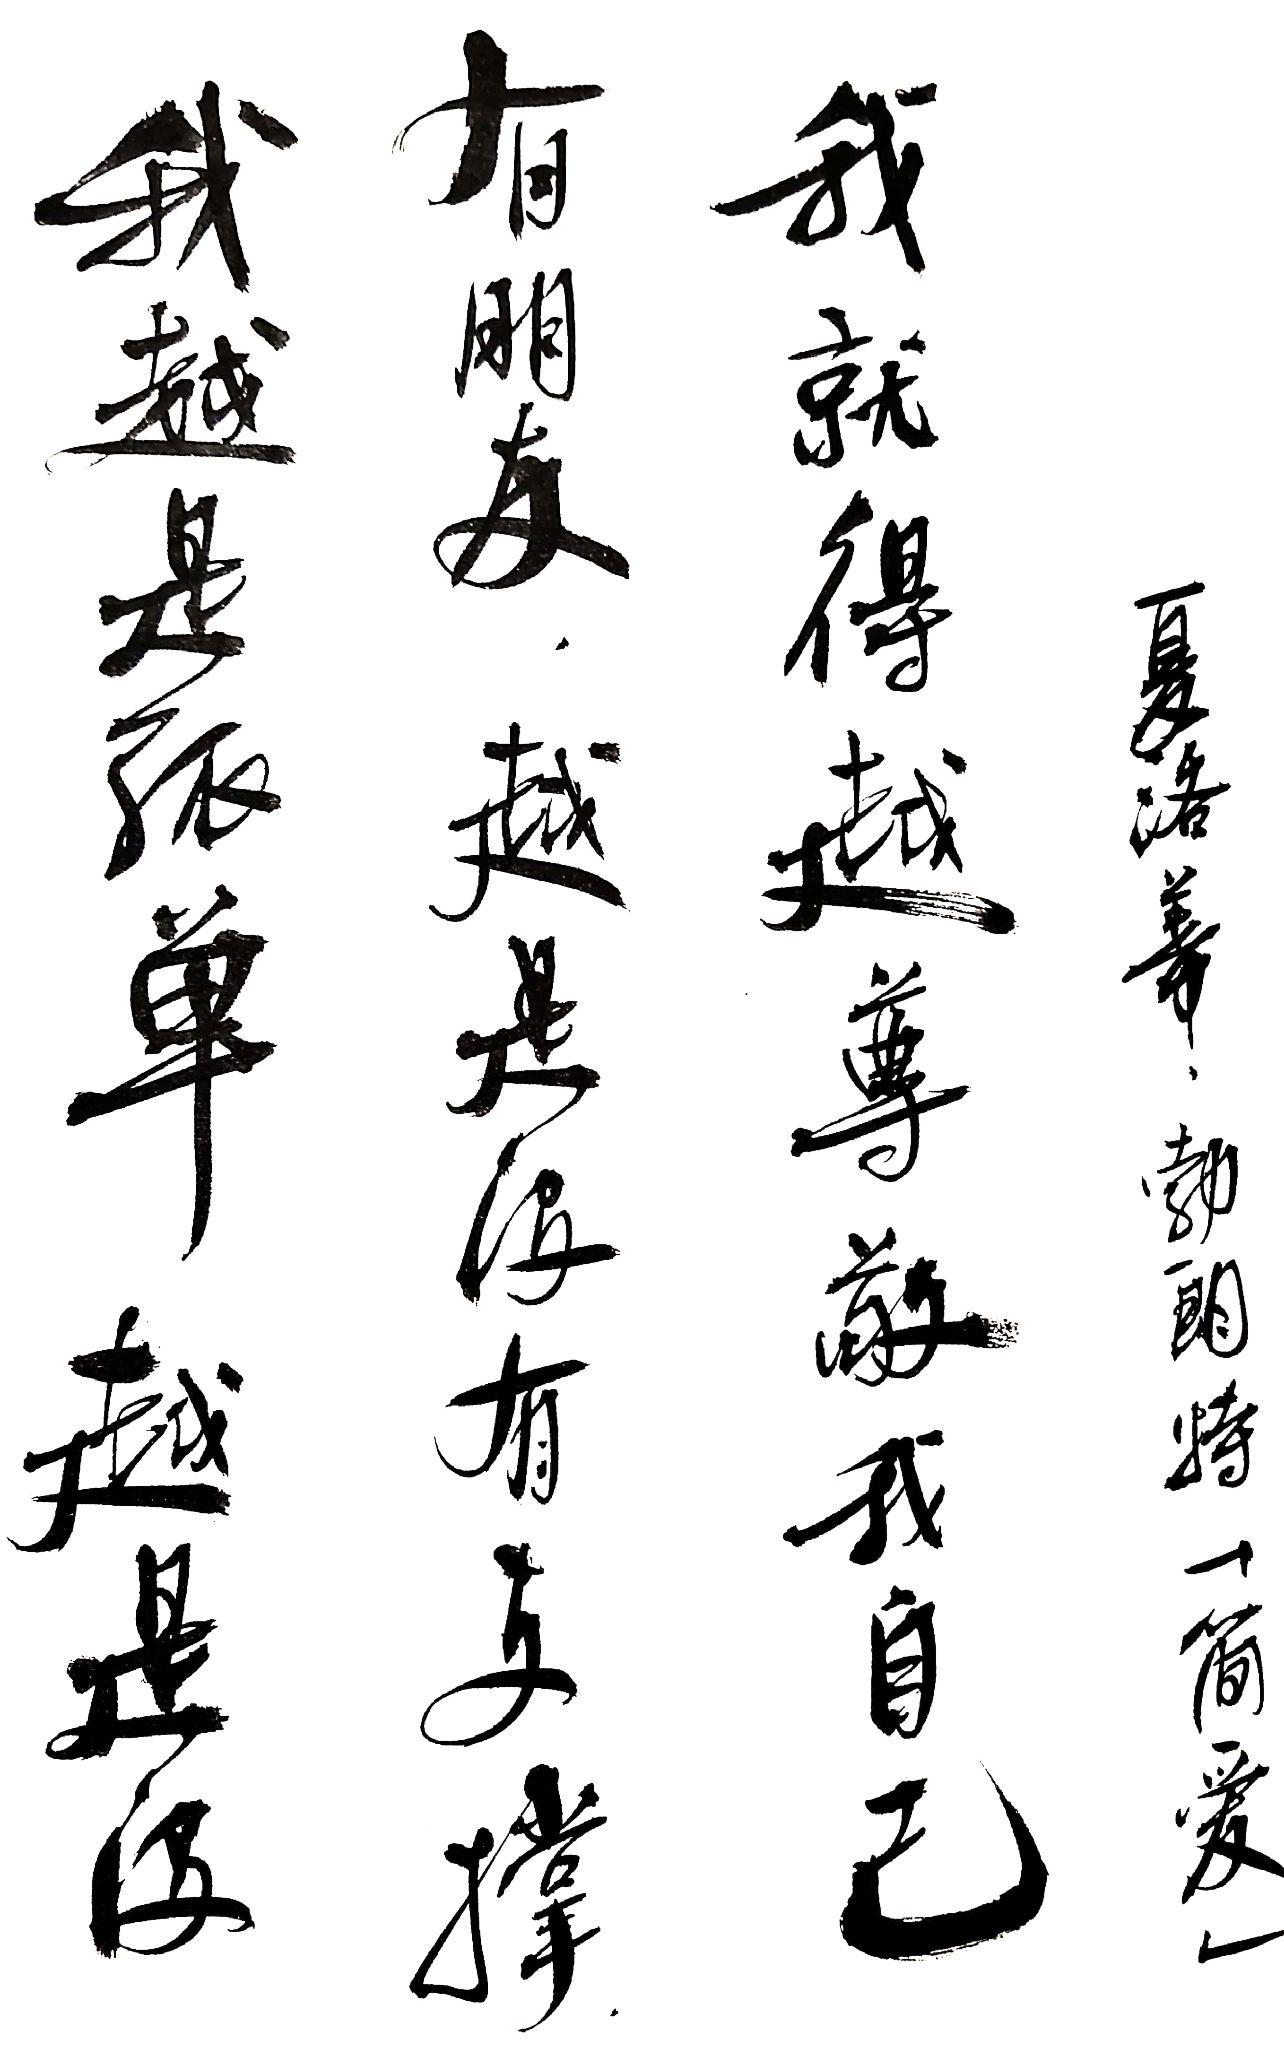 我越是孤单 越是没
有朋友，越是没有支撑，
我就得越尊敬我自己
夏洛蒂·勃朗特「简爱」